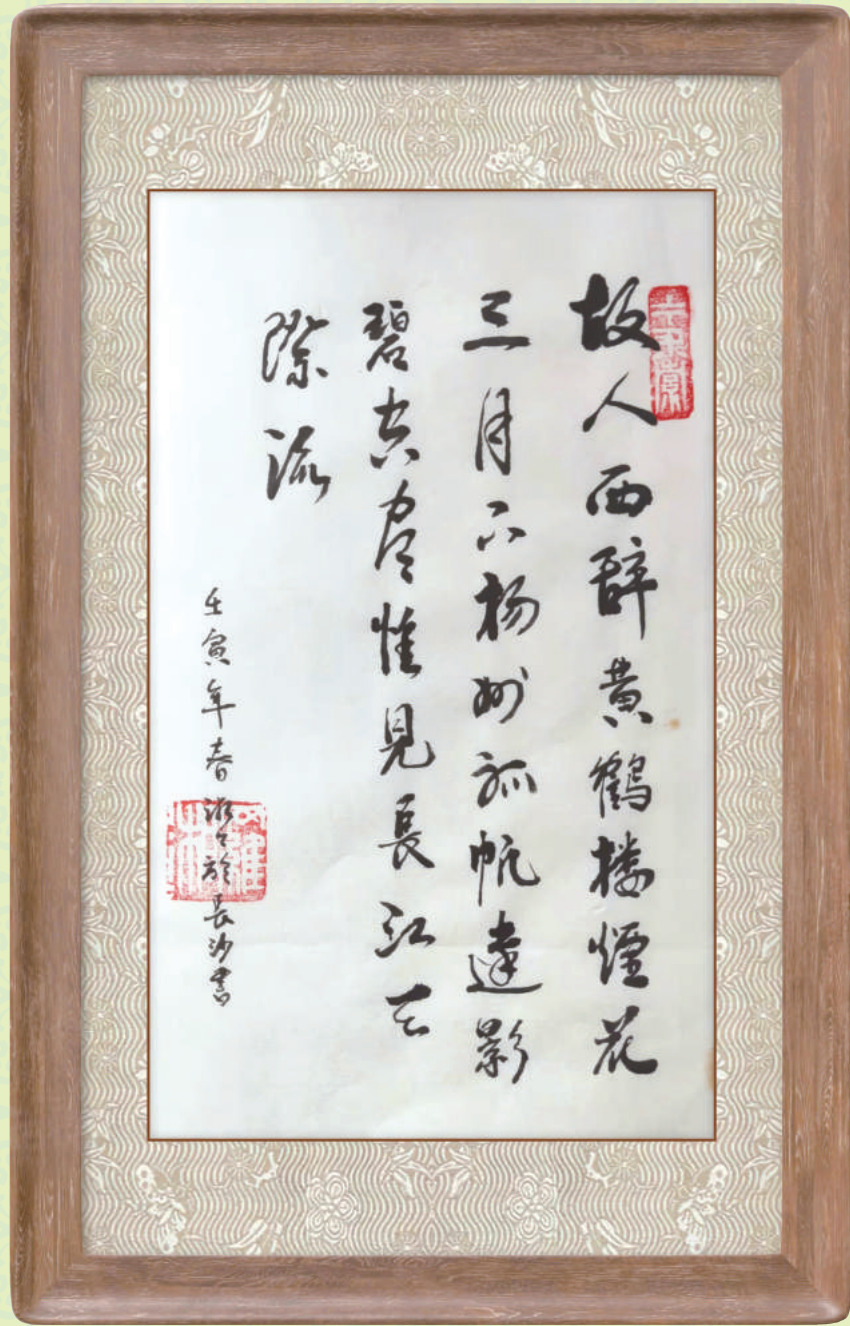 故人西辞黄鶴楼煙花
三月下揚州孤帆遠影
碧空尽惟見長江天
際流
壬寅年春於長沙書